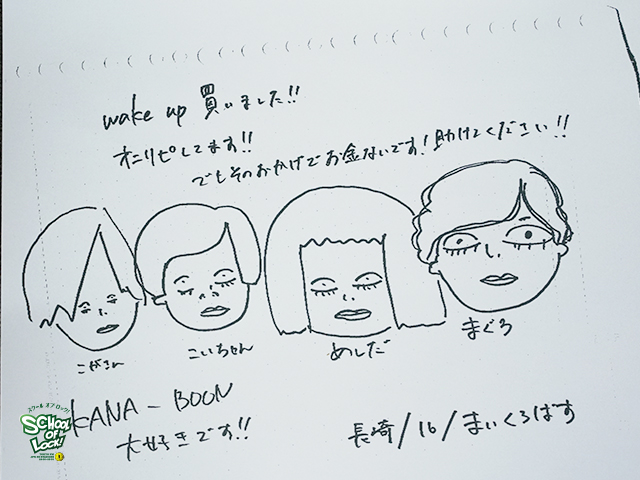 wake up 買いました!!
オニリピしてます!!
でもそのおかげでお金ないです!助けてください!!
こがさん
こいちゃん
めしだ
まぐろ
KANA-BOON
大好きです!!
長崎/16/まいくろばす
スクール オブ ロック!
SCHOOL
OF
LOCK!